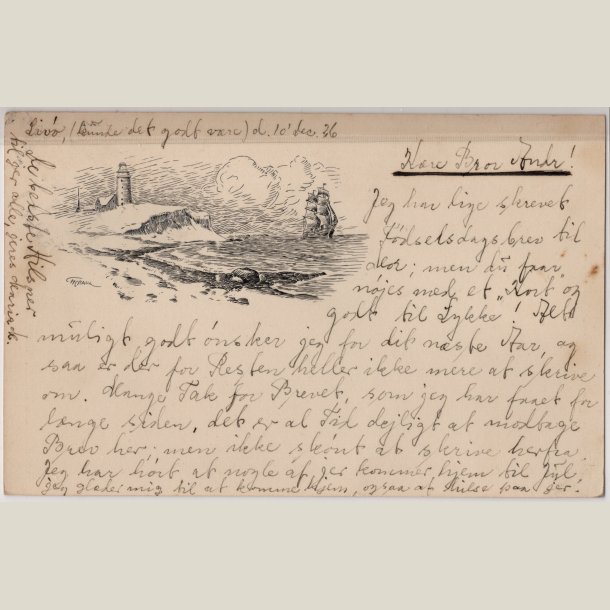 Livø, (kunde det godt være) d. 10' Dec. 36
Kære Bror Andr!
Jeg har lige skrevet
Fødselsdagsbrev til
; men du faar
nøjes med et "Kort og
godt til Lykke! Alt
muligt godt ønsker jeg for dit næste Aar, og
saa er der for Resten heller ikke mere at skrive
om. Mange Tak for Brevet, som jeg har faaet for
længe siden, det er al Tid dejligt at modtage
Brev her; men ikke skønt at skrive herfra.
Jeg har hørt at nogle af jer kommer hjem til Jul.
jeg glæder mig til at komme hjem, ogsaa at hilse paa jer!
De bedste Hilsner
til jer alle, jeres